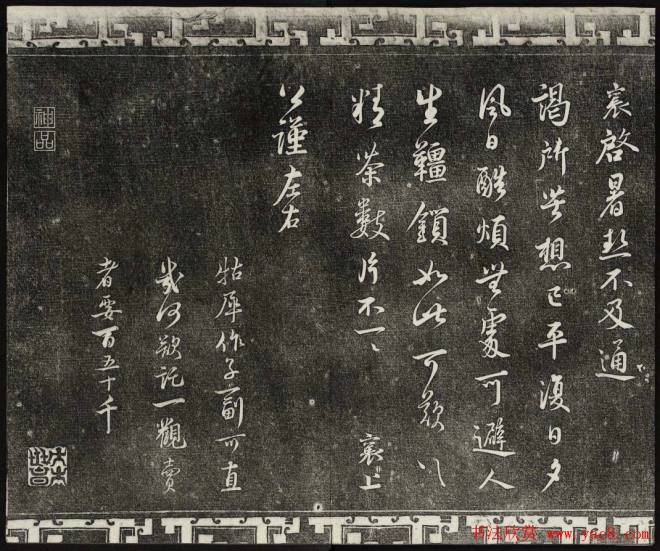 襄啓暑熱不及通
謁所苦想已平復日夕
風日酷煩無處可避人
生韁鎖如此可歎
精茶數片不一一 襄上
公謹左右
牯犀作子一副可直
幾何欲託一觀賣
者要百五十千
神品
书法欣赏 www.yac8.com